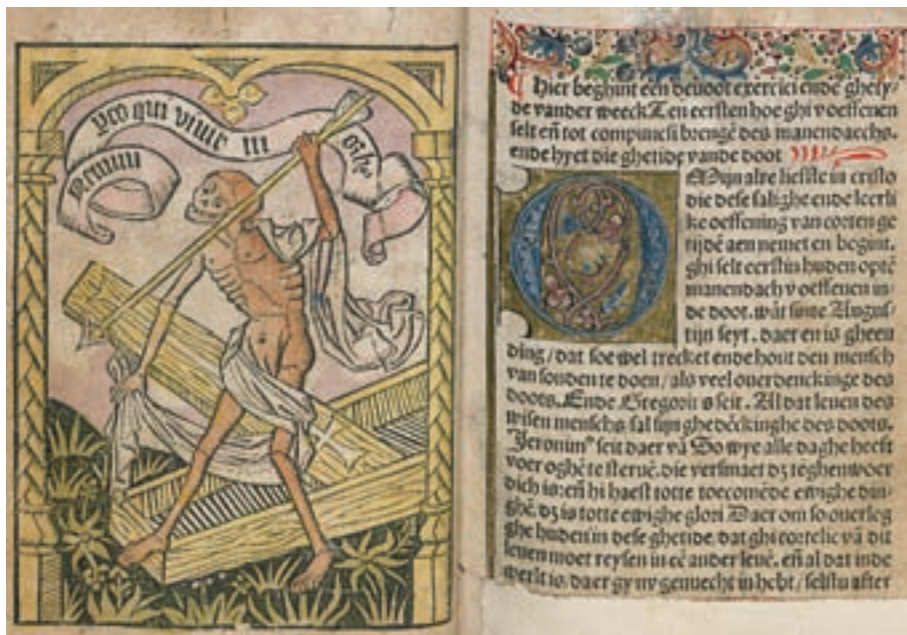 Nemini
pco qui viuit in
orbe
Hier beghint een deuoot exercici ende ghety⸗
de vander weeck Ten eersten hoe ghi v oeffenen
selt en̄ tot compunctiē brengē des manendaechs.
ende hyet die ghetidē vande doot
Mijn alre liefste in cristo
die dese salighe ende leerli
ke oeffening van corten ge
tijdē aen nemet en begint.
ghi selt eerst in huden optē
manendach v oeffenen in⸗
de doot. wāt sinte Augus⸗
tijn seyt. daer en is gheen
ding/ dat soe wel trecket ende hout den mensch
van sonden te doen/ als veel ouerdenckinge des
doots. Ende Gregoriꝰ seit. Al dat leuen des
wisen menschs sal sijn ghedēckinghe des doots.
Jeronimꝰ seit daer vā So wye alle daghe heeft
voer oghē te steruē. die versmaet dꝫ teghenwoer
dich is: en̄ hi haest totte toecomēde ewighe din⸗
ghē. dꝫ is totte ewighe glori Daer om so ouerleg
ghe huden in dese ghetide. dat ghi cortelic vā dit
leuen moet reysen in eē ander leuē. en̄ al dat inde
werlt is. daer gy nv genuecht in hebt/ selstu after